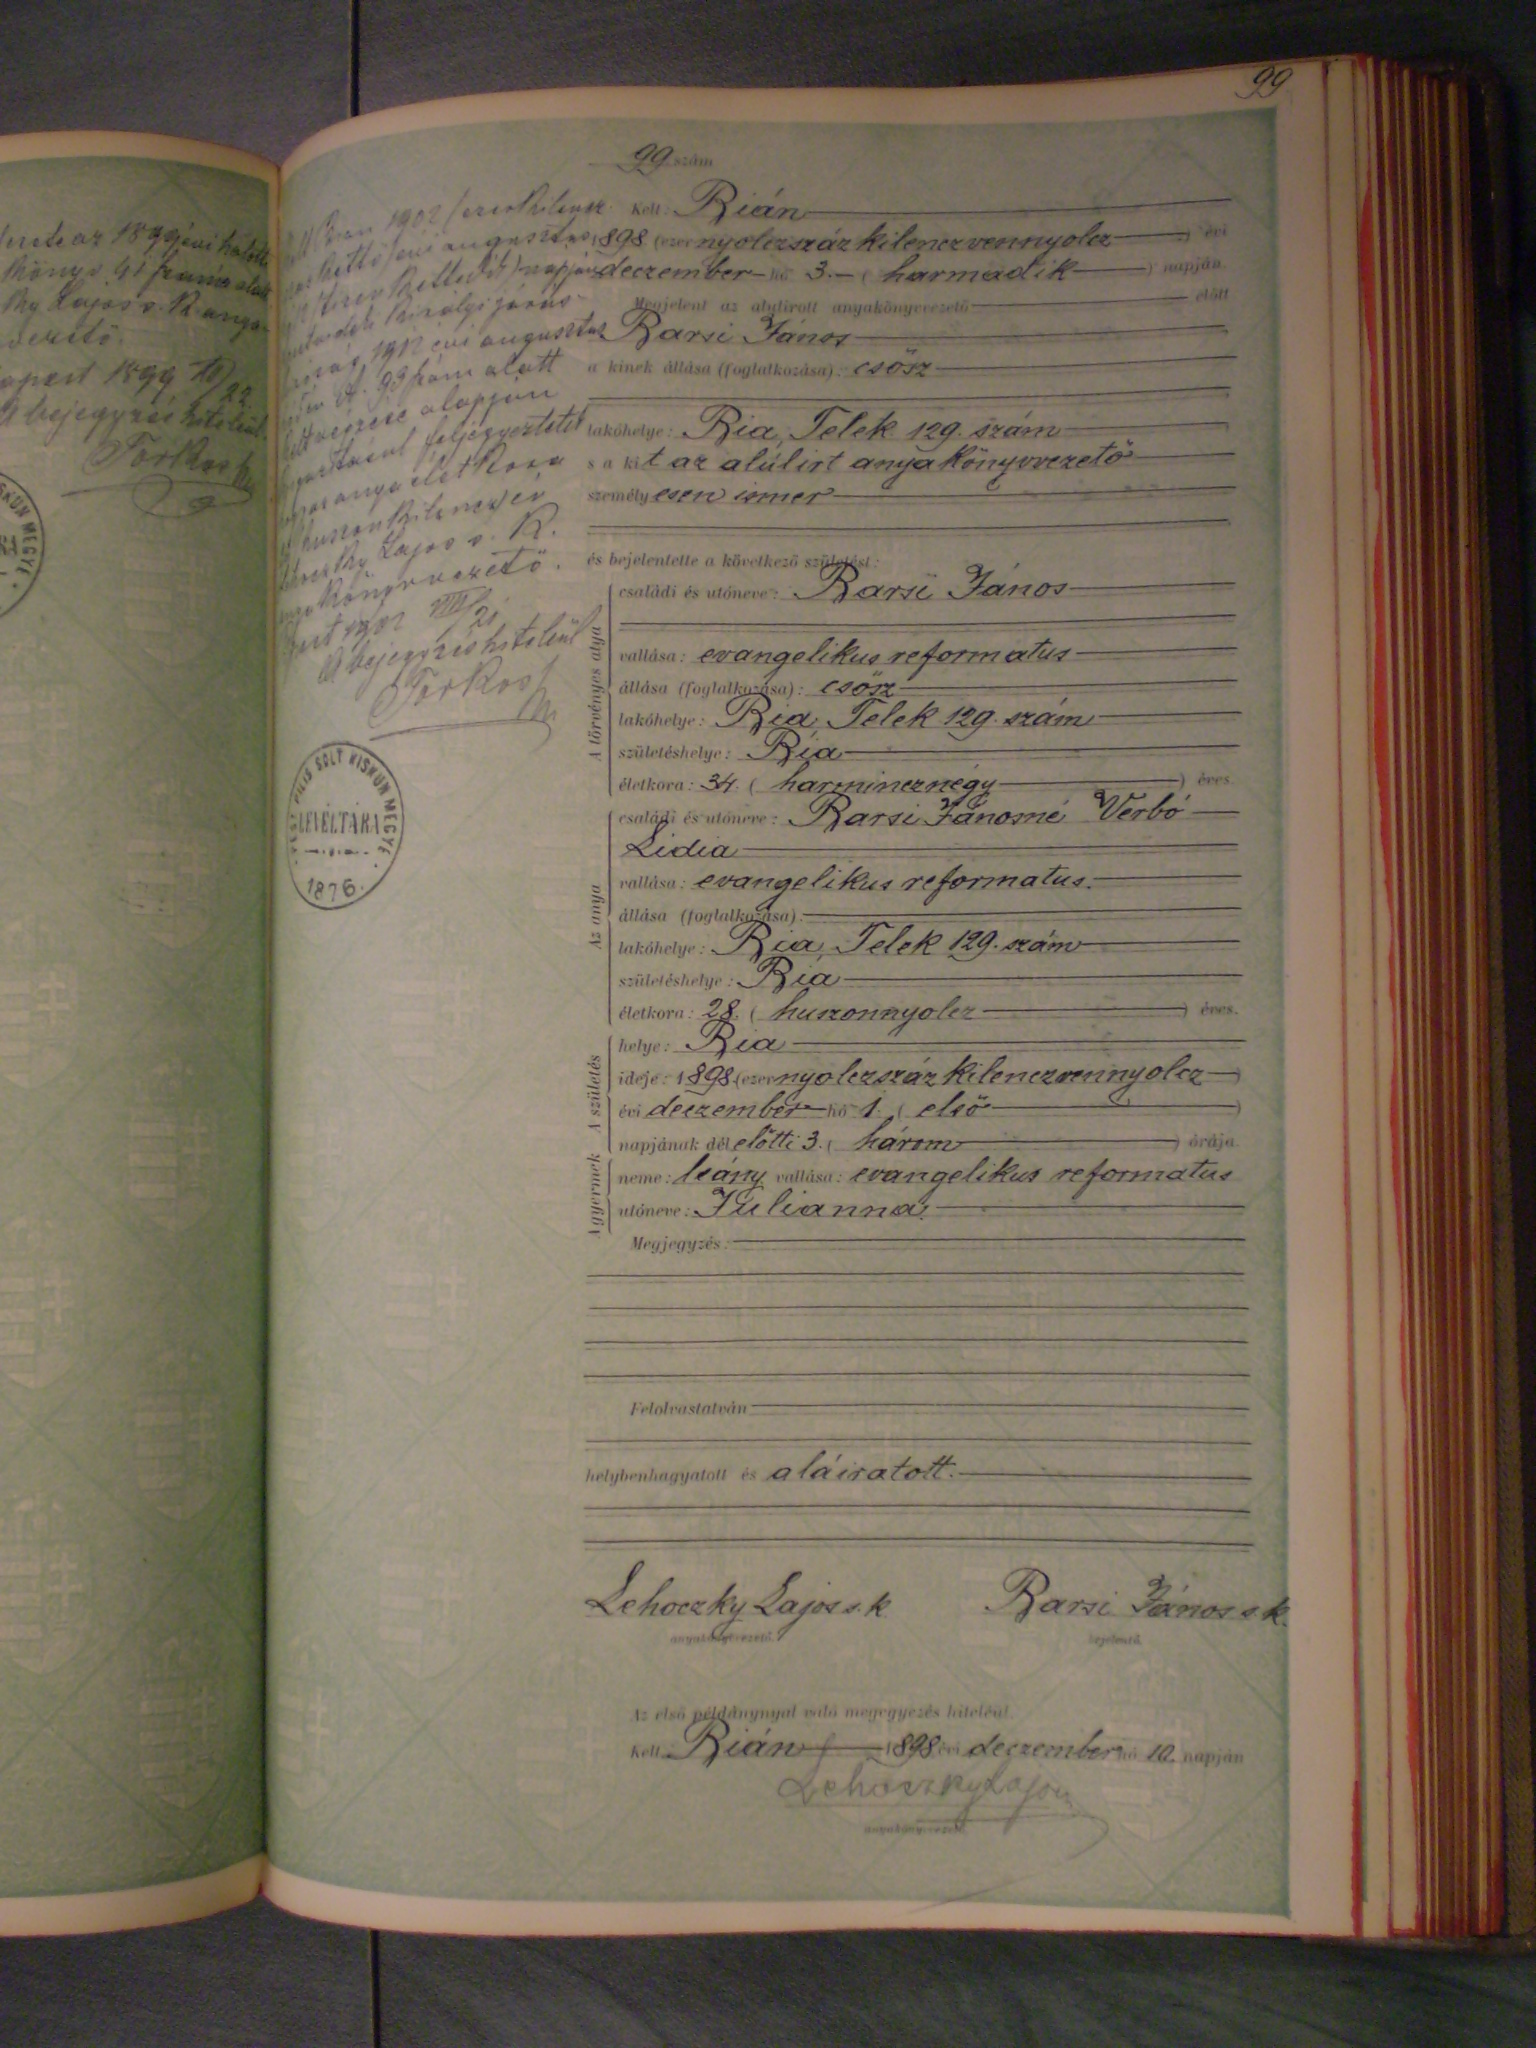 99
99 szám
Kelt: Rián
1898 (ezer nyolczszáz kilenczvennyolcz) évi
deczember hó 3. (harmadik) napján.
Megjelent az alulirott anyakönyvvezető előtt
Barsi János
a kinek állása (foglalkozása): csősz
lakóhelye: Ria, Telek 129. szám
s a kit az alúlirt anyakönyvvezető
személyesen ismer
és bejelentette a következő születést:
A törvényes atya
családi és utóneve: Barsi János
vallása: evangelikus reformatus
állása (foglalkozása): csősz
lakóhelye: Ria, Telek 129. szám
születéshelye: Ria
életkora: 34. (harmincznégy) éves.
Az anya
családi és utóneve: Barsi Jánosné Verbó
Lidia
vallása: evangelikus reformatus.
állása (foglalkozása):
lakóhelye: Ria, Telek 129. szám
születéshelye: Ria
életkora: 28. (huszonnyolcz) éves.
A születés
helye: Ria
ideje: 1898 (ezer nyolczszáz kilenczvennyolcz)
évi deczember hó 1. (első)
napjának délelőtti 3. (három) órája.
A gyermek
neme: leány vallása: evangelikus reformatus
utóneve: Julianna.
Megjegyzés:
Felolvastatván
helybenhagyatott és aláiratott.
Lehoczky Lajos s. k. Barsi János s. k.
anyakönyvvezető. bejelentő.
Az első példánynyal való megegyezés hiteléül.
Kelt Rián 1898 évi deczember hó 10. napján
Lehoczky Lajos
anyakönyvvezető.
1902
augusztus
királyi járás
1902 évi augusztus
99 szám alatt
végzése alapján
feljegyeztetik
anya életkora
huszonkilencz év
Lajos s. k.
anyakönyvvezető.
1902 VIII/21
A bejegyzés hiteléül
Torkos
PEST PILIS SOLT KISKUN MEGYE
LEVÉLTÁRA
1876.
1899 évi halott
könyv 41 szám alatt
Lajos s. k. anya-
1899
A bejegyzés hiteléül
Torkos
KISKUN MEGYE